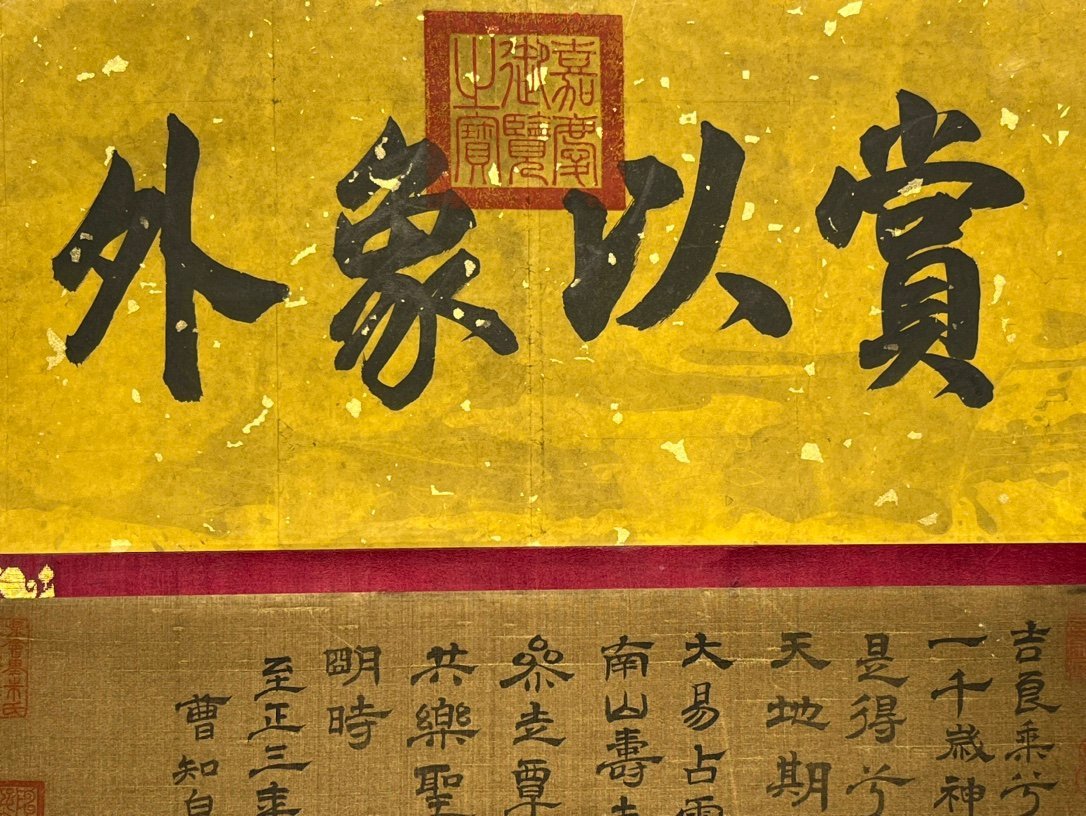 賞以象外
嘉慶
御覽
之寶
吉良乘兮
一千歲神
是得兮
天地期
大易占
南山壽
叅覃
共樂聖
明時
至正三年
曹知白